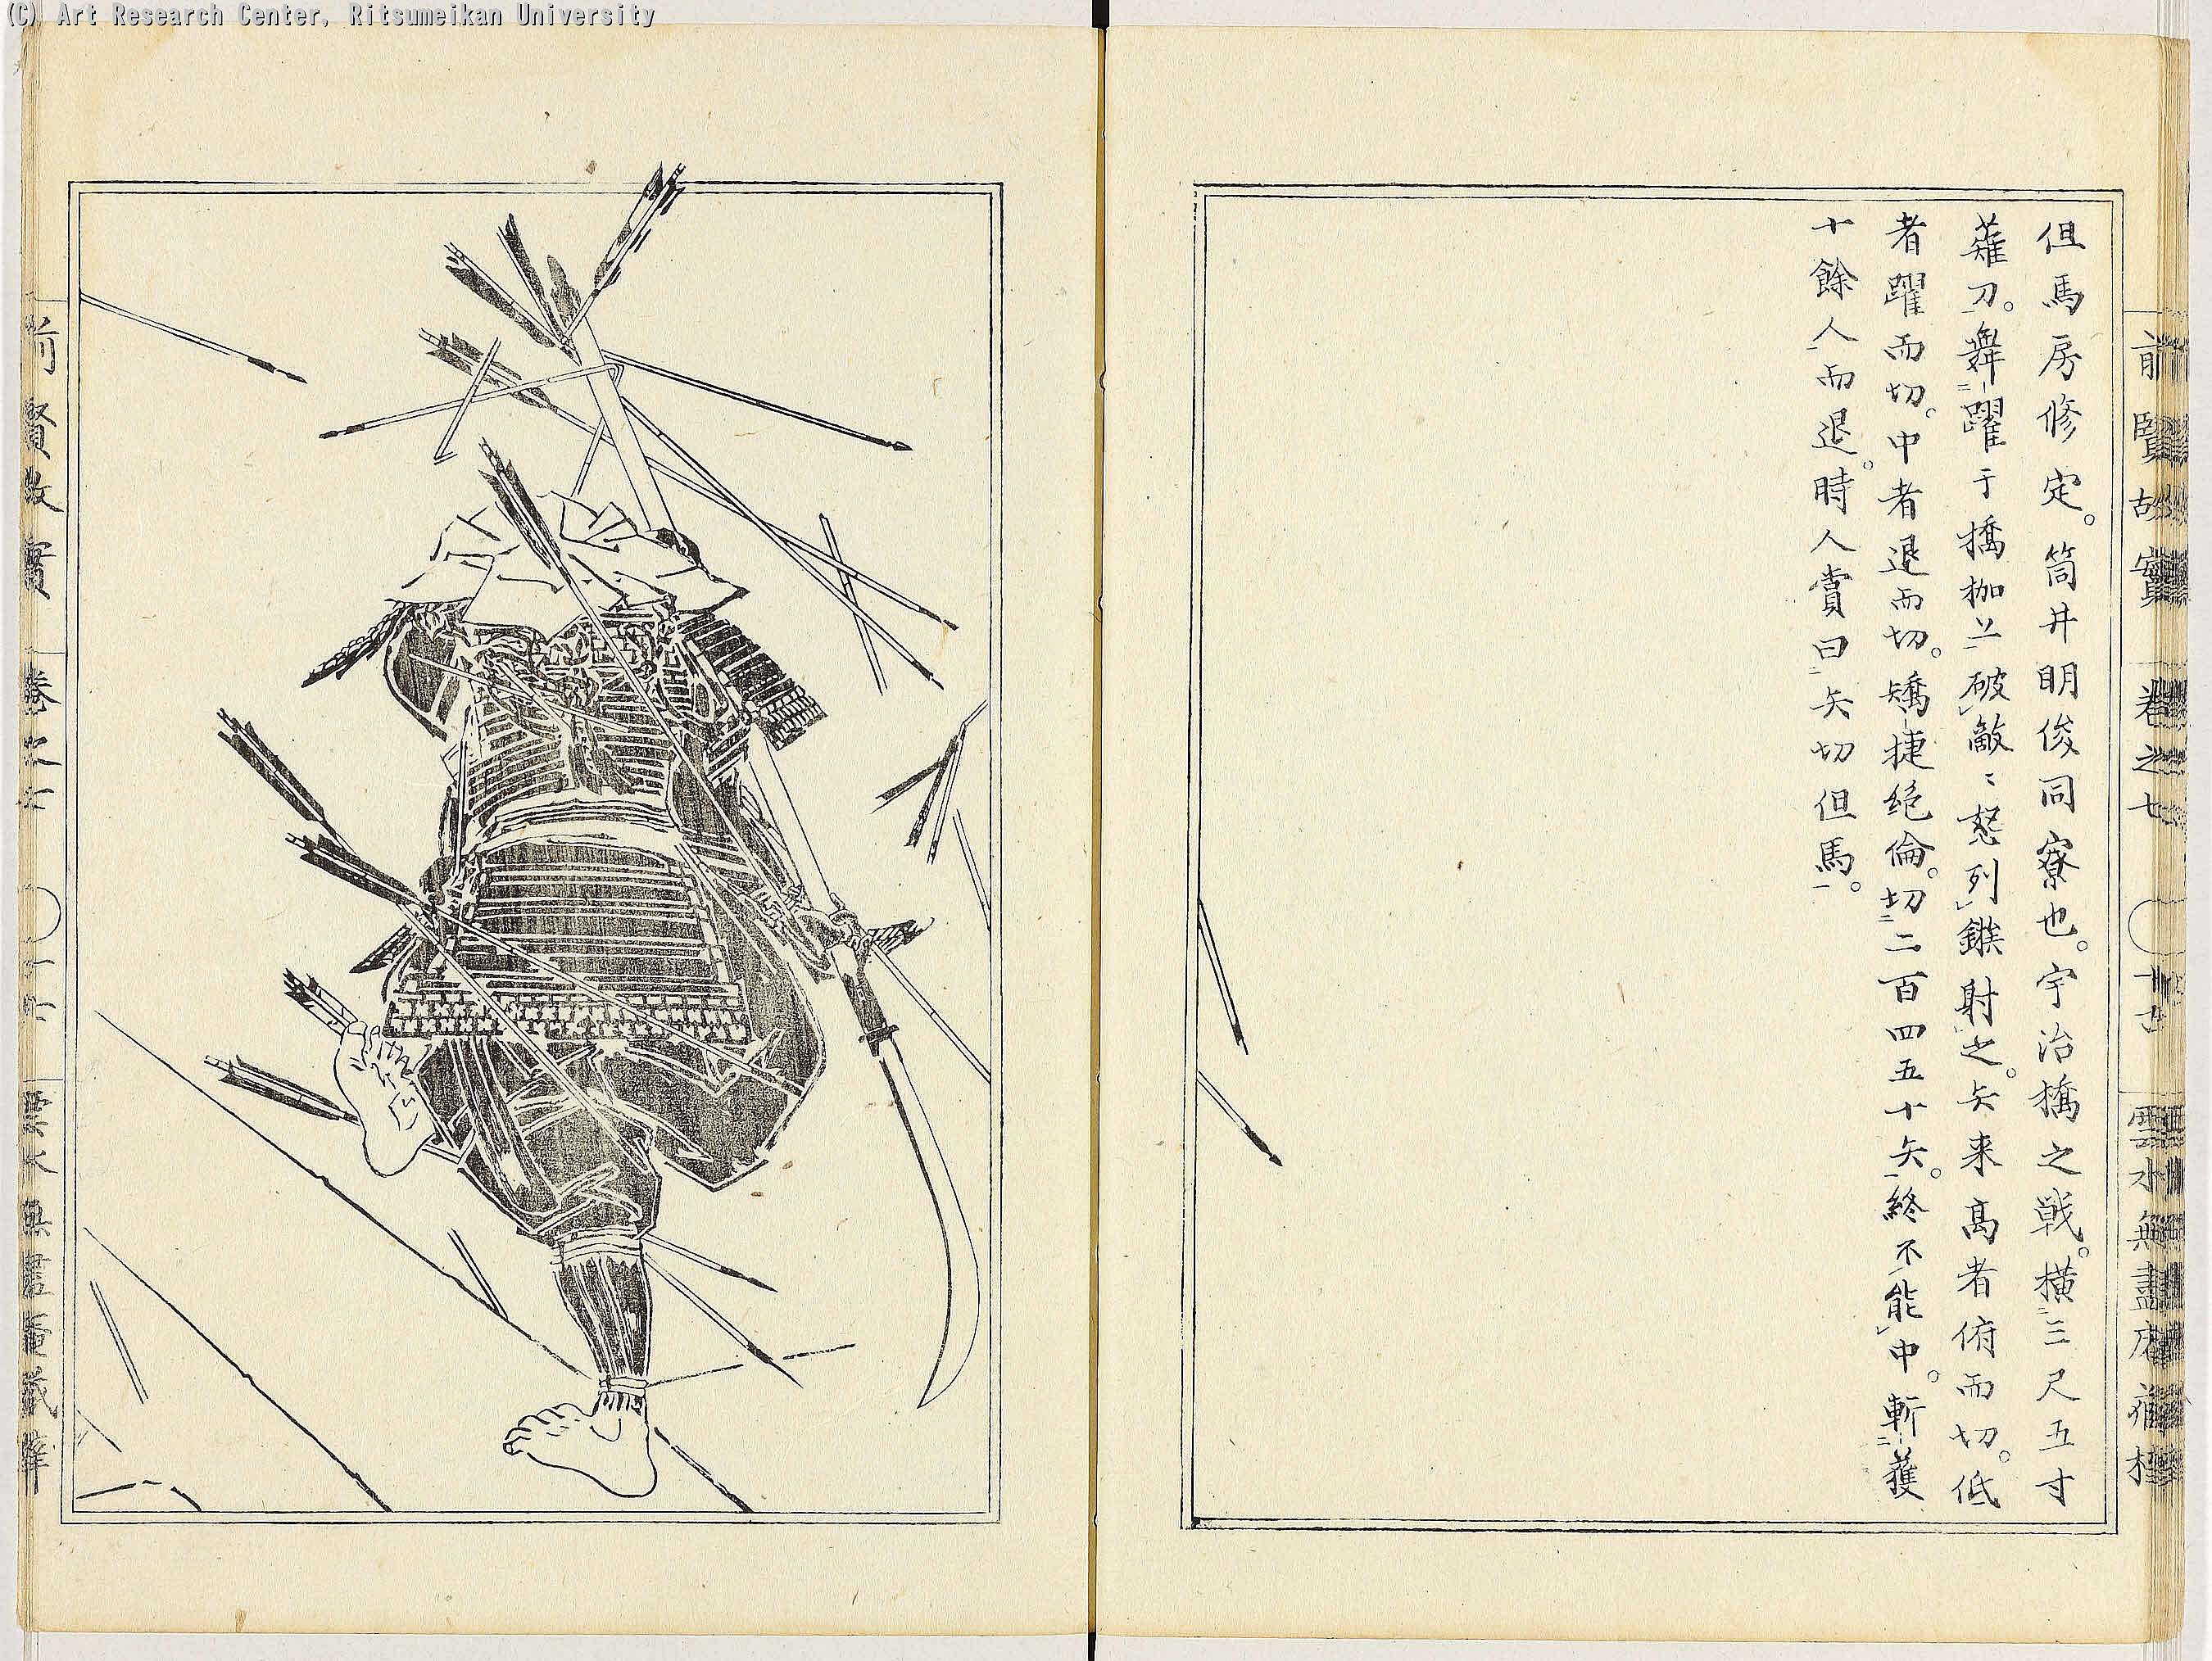 (C) Art Research Center, Ritsumeikan University
但馬房修定。筒井明俊同寮也。宇治橋之戰。横二三尺五寸
薙刀一。舞二-躍于橋枷上一。破レ敵〻怒列レ鏃射レ之。矢来高者俯而切。低
者躍而切。中者退而切。矯-捷絶倫。切二二百四五十矢一。終不レ能レ中。斬二-獲
十餘人一而退。時人賞曰二矢切但馬一。
前賢故實 卷之七 十七 雲水無盡
前賢故實 卷之七 十七 雲水無盡